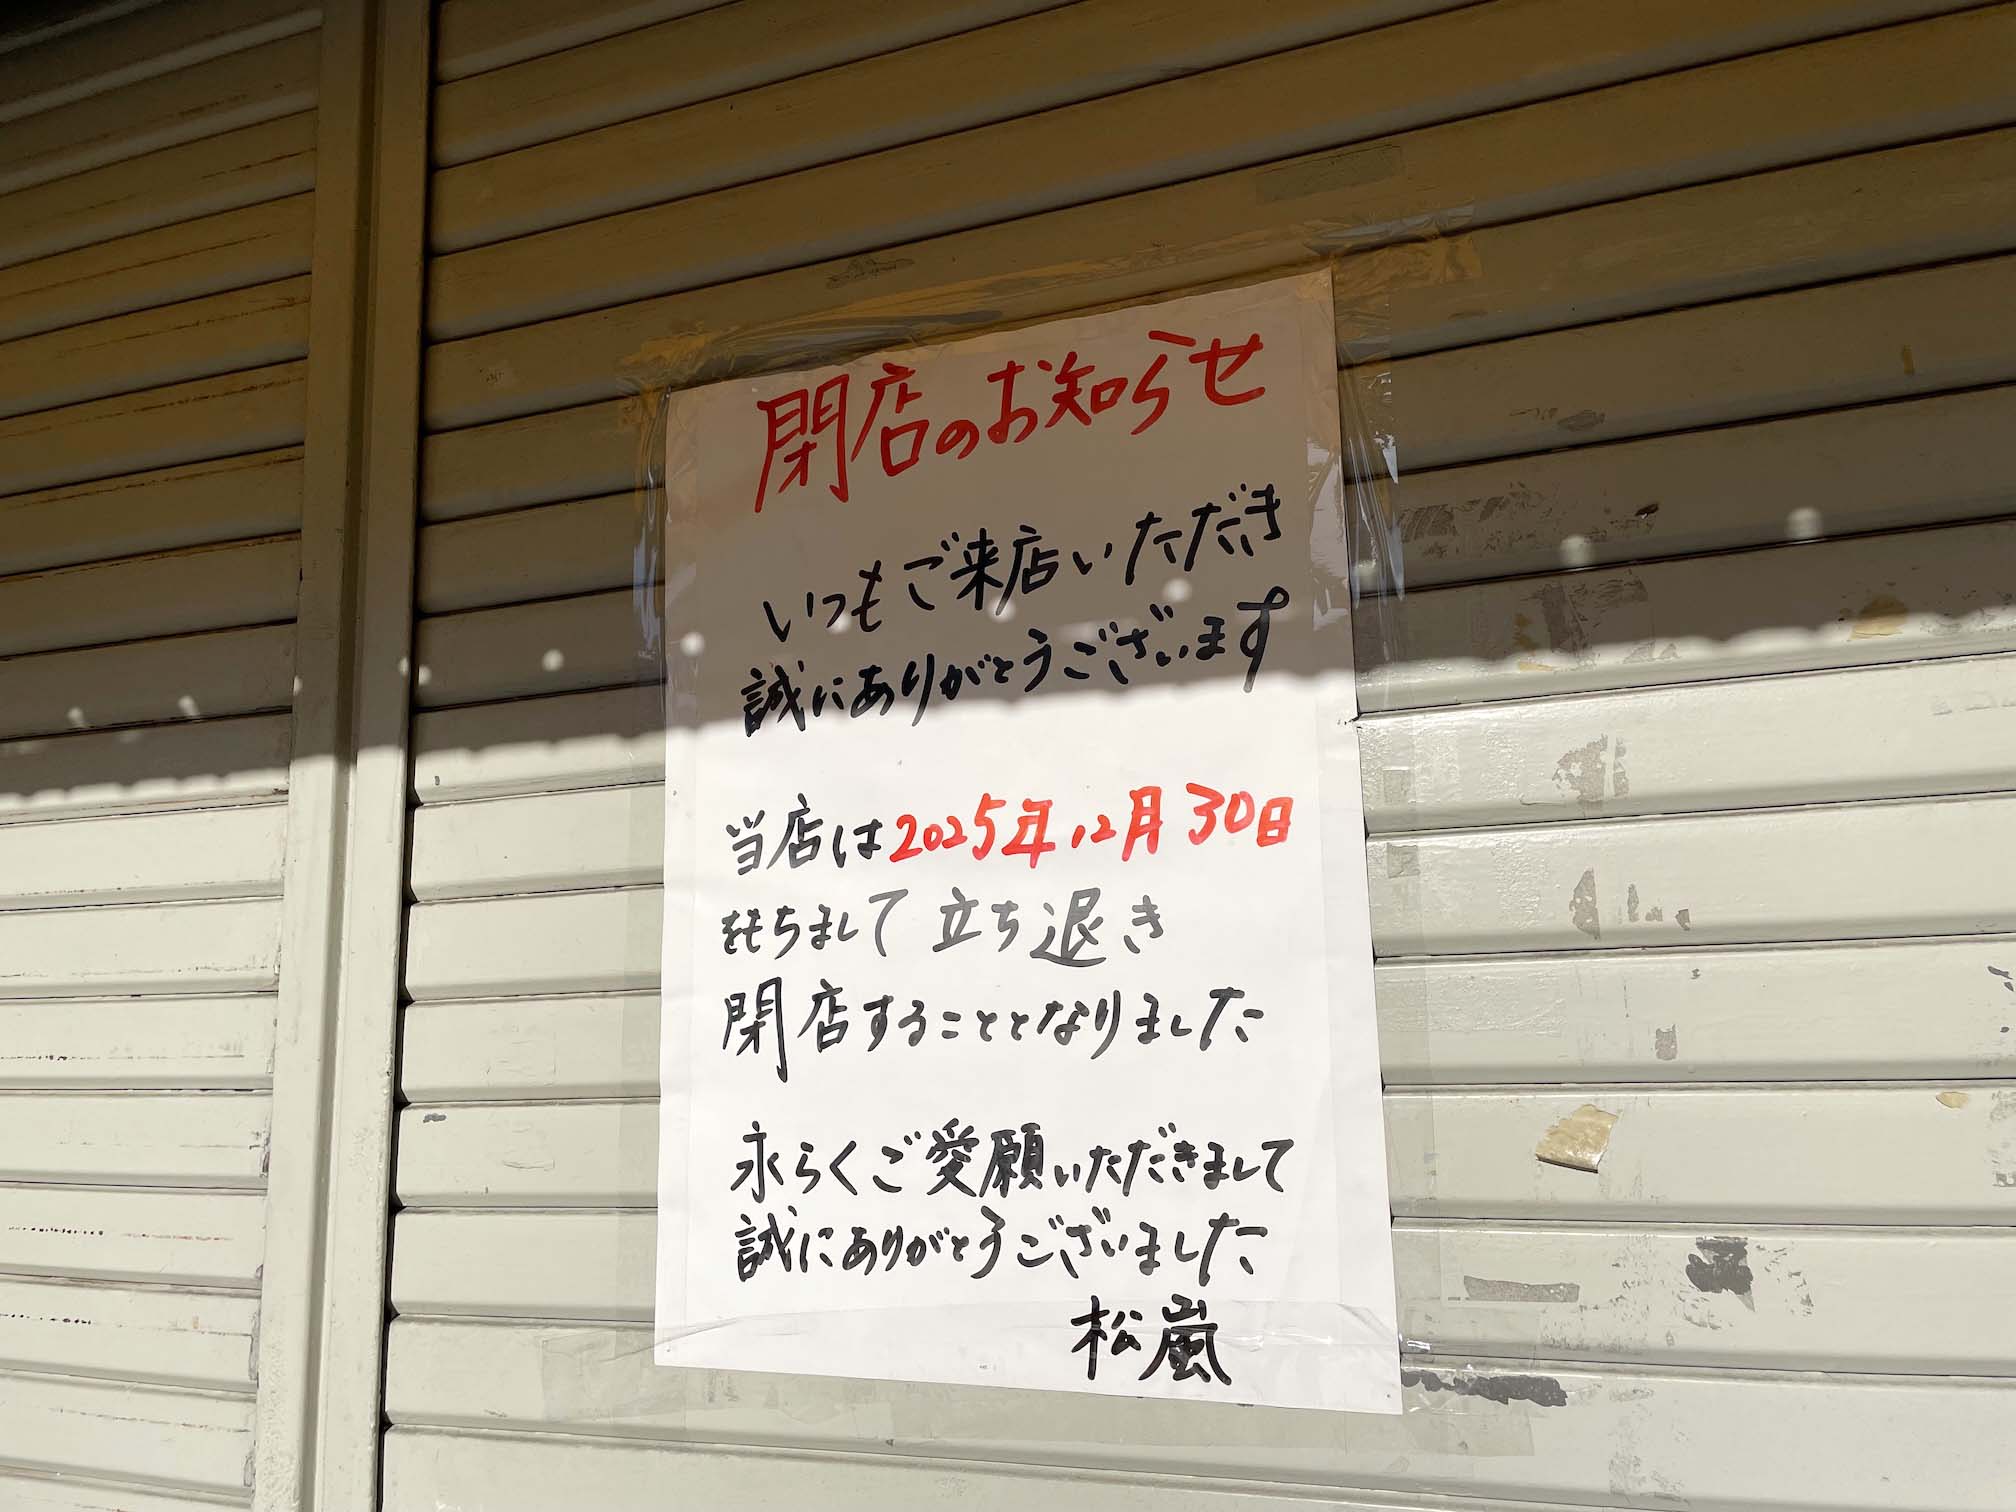 閉店のお知らせ
いつもご来店いただき
誠にありがとうございます
当店は2025年12月30日
をもちまして立ち退き
閉店することとなりました
永らくご愛願いただきまして
誠にありがとうございました
松嵐